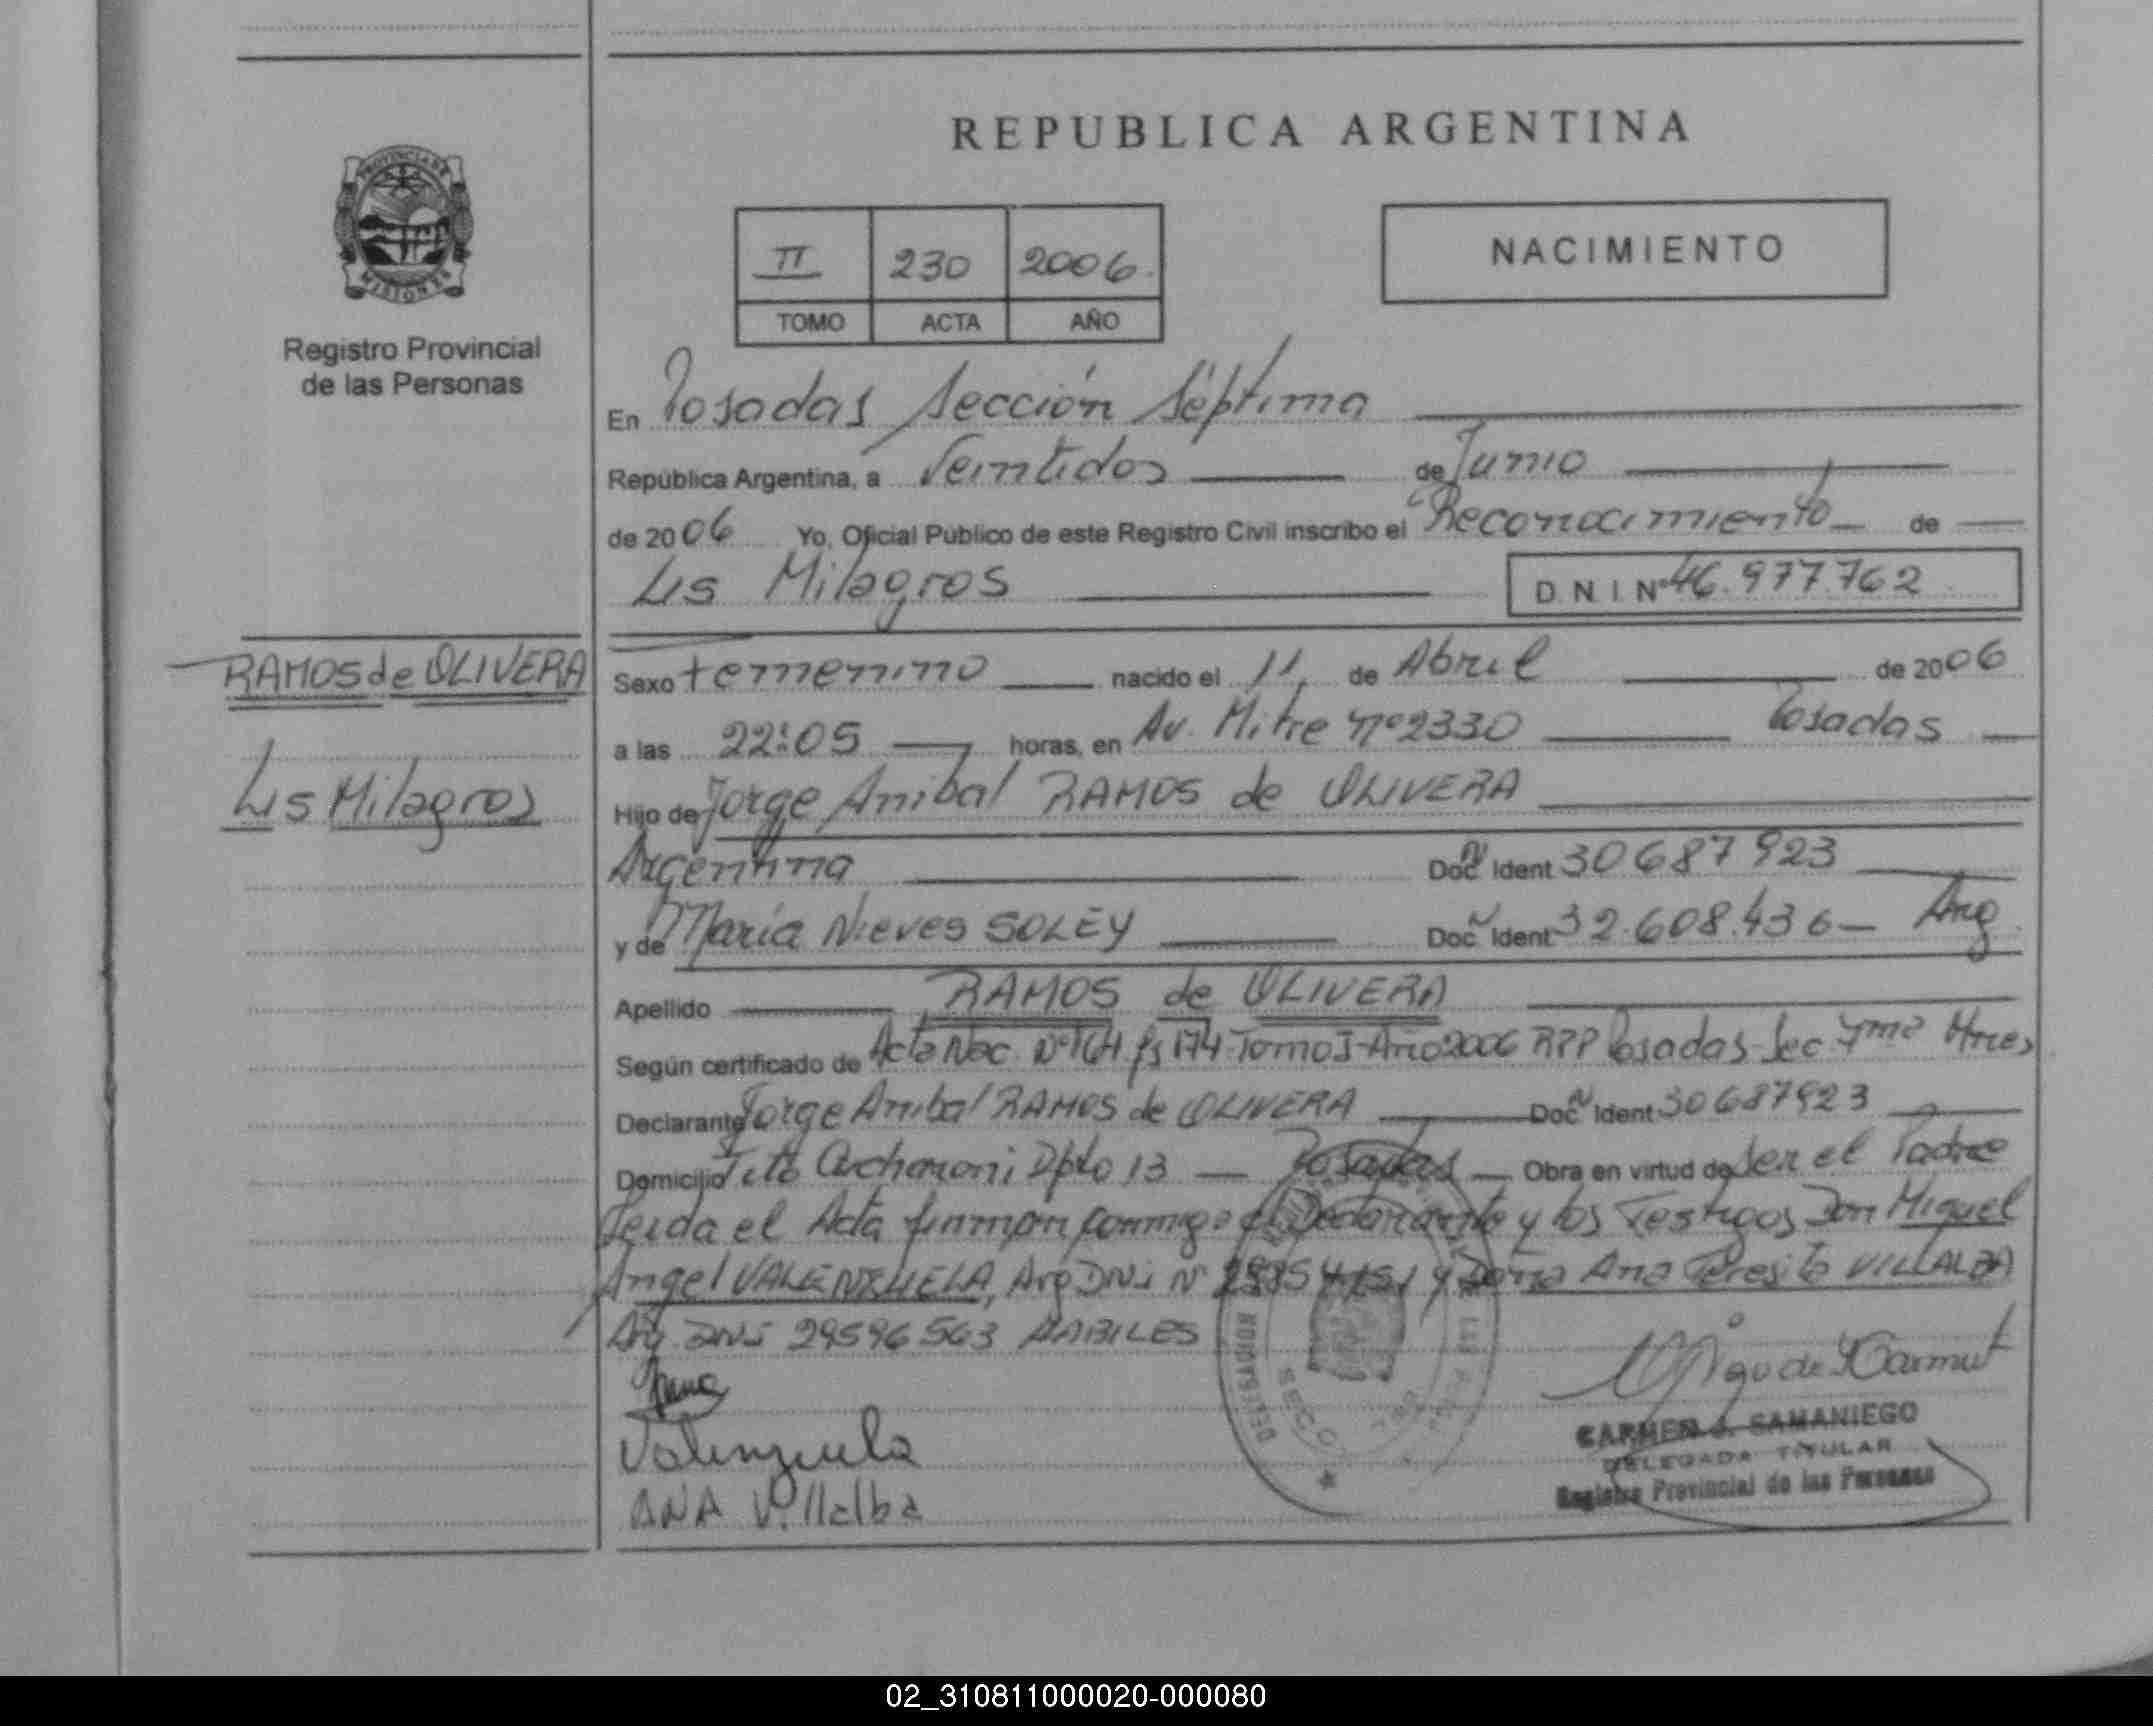 REPUBLICA ARGENTINA
PROVINCIA DE
MISIONES
Registro Provincial
de las Personas
II 230 2006
TOMO ACTA AÑO
NACIMIENTO
En Posadas Sección Séptima
República Argentina, a Veintidos de Junio
de 2006 Yo, Oficial Público de este Registro Civil inscribo el Reconocimiento de
Lis Milagros D N I Nº 46.977.762
RAMOS de OLIVERA
Lis Milagros
Sexo femenino nacido el 11 de Abril de 2006
a las 22:05 horas, en Av. Mitre nº 2330 Posadas
Hijo de Jorge Anibal RAMOS de OLIVERA
Argentina Doc Ident 30687923
y de María Nieves SOLEY Doc Ident 32.608.436 Arg
Apellido RAMOS de OLIVERA
Según certificado de Acta Nac. Nº 164 fs 174 Tomo I Año 2006 RPP Posadas Sec 7ma Mnes
Declarante Jorge Anibal RAMOS de OLIVERA Doc Ident 30687923
Domicilio Tito Dpto 13 Posadas Obra en virtud de Ser el Padre
Leida el Acta firman conmigo el Declarante y los Testigos Don Miguel
Angel VALENZUELA, Arg DNI Nº y Doña Ana Teresita VILLALBA
Arg. DNI 29596563 HABILES
Valenzuela
ANA Villalba
CARMEN J. SAMANIEGO
DELEGADA TITULAR
Registro Provincial de las Personas
02_310811000020-000080